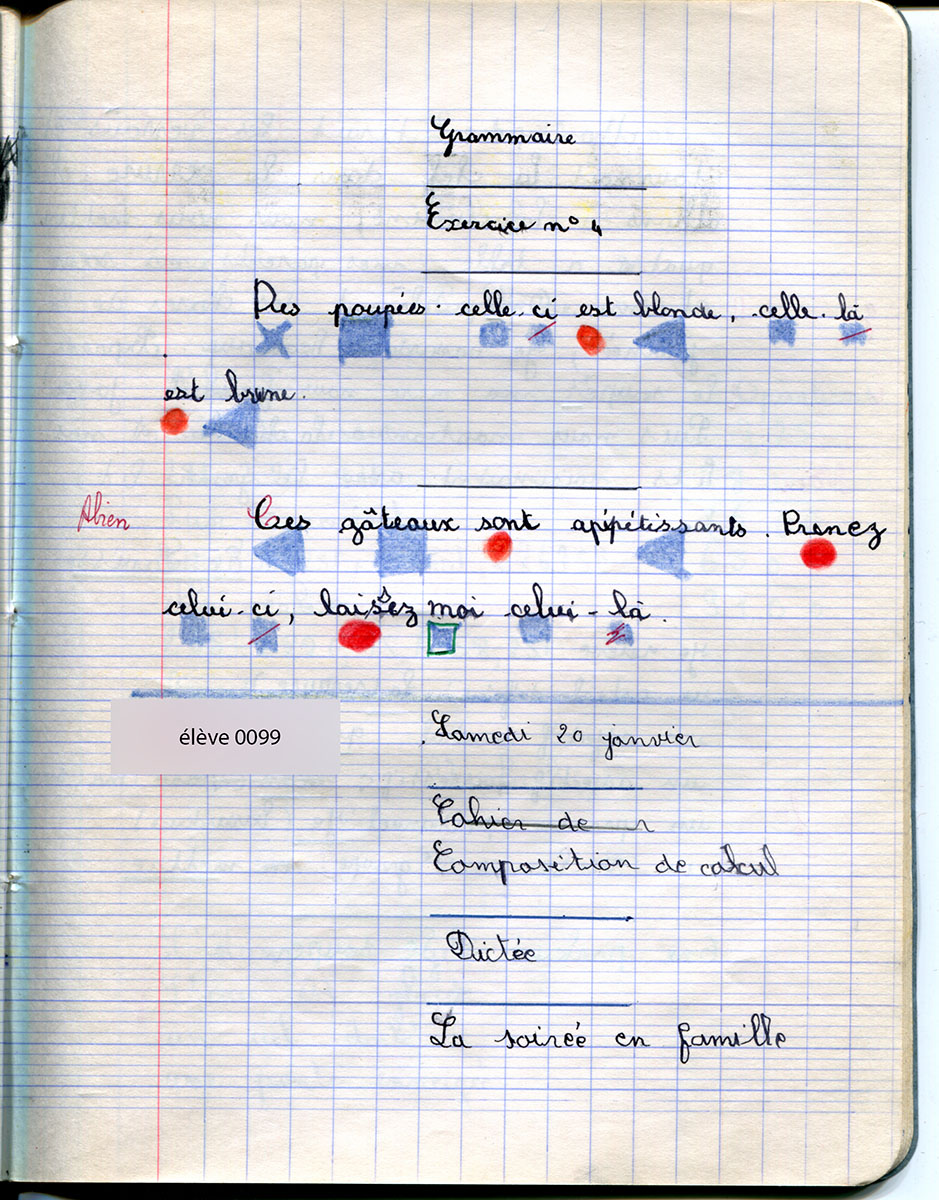 Grammaire
Exercice n° 4
Des poupées. celle-ci est blonde, celle-là
est brune.
Abien
Ces gâteaux sont appétissants. Prenez
celui-ci, laissez moi celui-là.
élève 0099
Samedi 20 janvier
Cahier de
Composition de calcul
Dictée
La soirée en famille